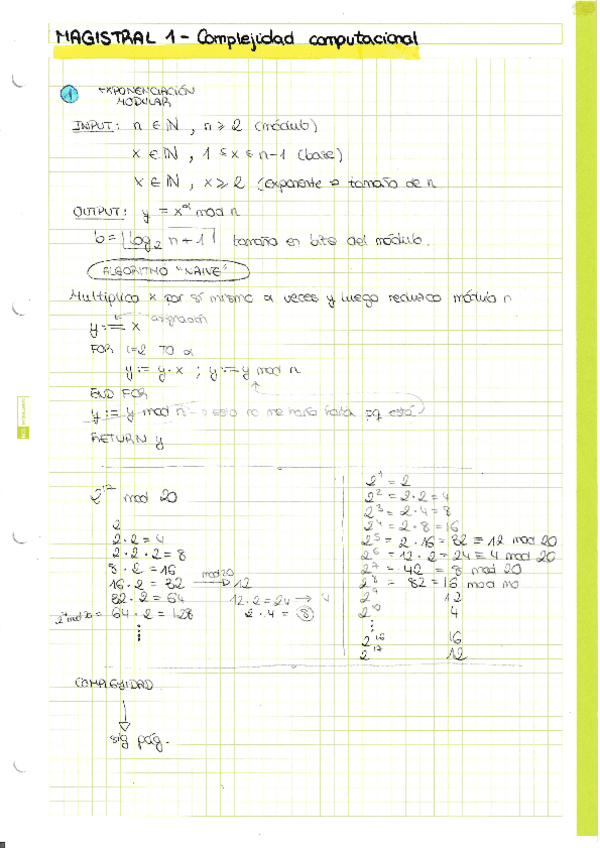 MAGISTRAL 1 - Complejidad computacional
1 EXPONENCIACIÓN
MODULAR
INPUT: n ∈ ℕ, n ≥ 2 (módulo)
x ∈ ℕ, 1 ≤ x ≤ n-1 (base)
x ∈ ℕ, x ≥ 2 (exponente → tamaño de n
OUTPUT: y = x^α mod n
b = ⌊log₂ n + 1⌋ tamaño en bits del módulo.
ALGORITMO "NAIVE"
Multiplico x por sí mismo α veces y luego reduzco módulo n
y := x ← asignación
FOR i=2 TO α
y := y·x ; y := y mod n
END FOR
y := y mod n → esto no me haría falta pq está
RETURN y
2^17 mod 20
2
2·2 = 4
2·2·2 = 8
8·2 = 16
16·2 = 32 mod 20 → 12
32·2 = 64 12·2 = 24 → 4
2^7 mod 20 = 64·2 = 128 2·4 = 8
⋮
2^1 = 2
2^2 = 2·2 = 4
2^3 = 2·4 = 8
2^4 = 2·8 = 16
2^5 = 2·16 = 32 ≡ 12 mod 20
2^6 = 12·2 = 24 ≡ 4 mod 20
2^7 = 42 = 8 mod 20
2^8 = 82 = 16 mod
2^9 12
2^10 4
⋮
2^16 16
2^17 12
COMPLEJIDAD
↓
sig pág.